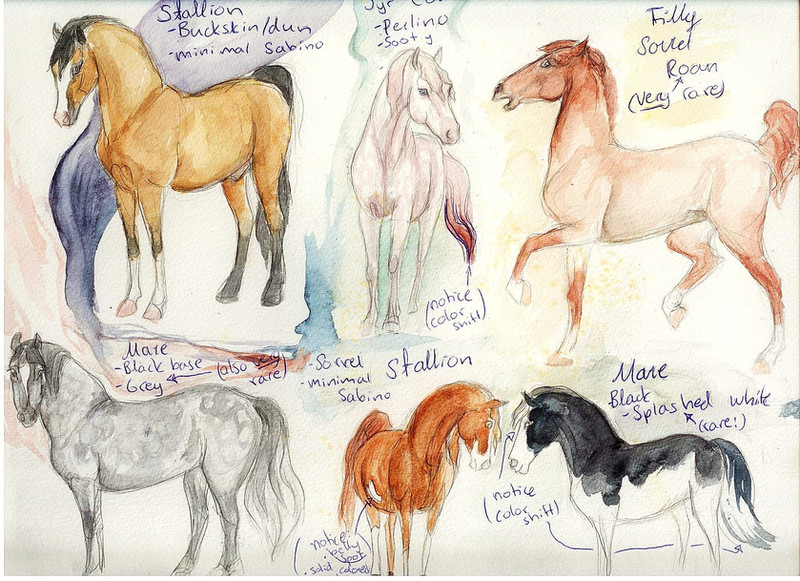 Stallion
- Buckskin/dun
- minimal Sabino
- Perlino
- Sooty
(notice
color
shift)
Filly
Sorrel
Roan
(very rare)
Mare
- Black base
- Grey
(also very
rare)
- Sorrel
- minimal
Sabino
Stallion
(notice
- belly
spot
- solid colored
Mare
Black
- Splashed white
(rare!)
(notice
color
shift)